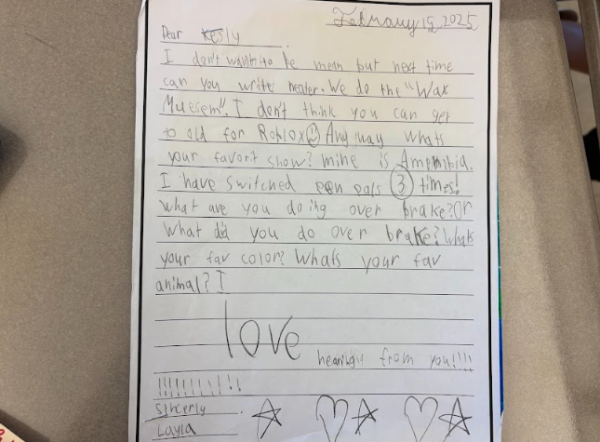 February 15, 2025
Dear Kesly
I don't want to be mean but next time
can you write neater. We do the "Wax
Museem". I don't think you can get
to old for Roblox☺ Any way whats
your favorit show? mine is Amphibia.
I have switched pen pals 3 times!
what are you doing over brake? Or
what did you do over brake? Whats
your fav color? Whats your fav
animal? I
love
hearingit from you!!!!
!!!!!!!!!!
Sincerly
Layla